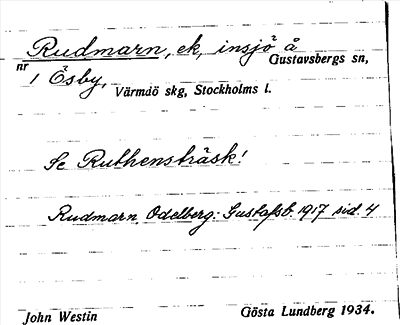 Rudmarn, ek, insjö å Gustavsbergs sn,
nr 1 Ösby, Värmdö skg, Stockholms l.
Se Ruthensträsk!
Rudmarn. Odelberg: Gustafsb. 1917 sid. 4
John Westin Gösta Lundberg 1934.